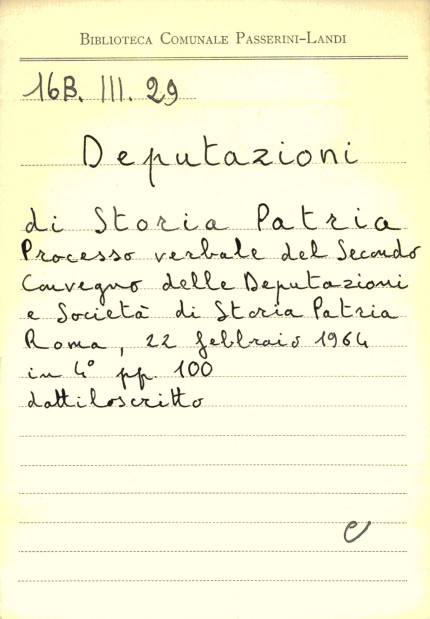 Biblioteca Comunale Passerini-Landi
16B. III. 29
Deputazioni
di Storia Patria
Processo verbale del Secondo
Convegno delle Deputazioni
e Società di Storia Patria
Roma, 22 febbraio 1964
in 4° pp. 100
dattiloscritto
e